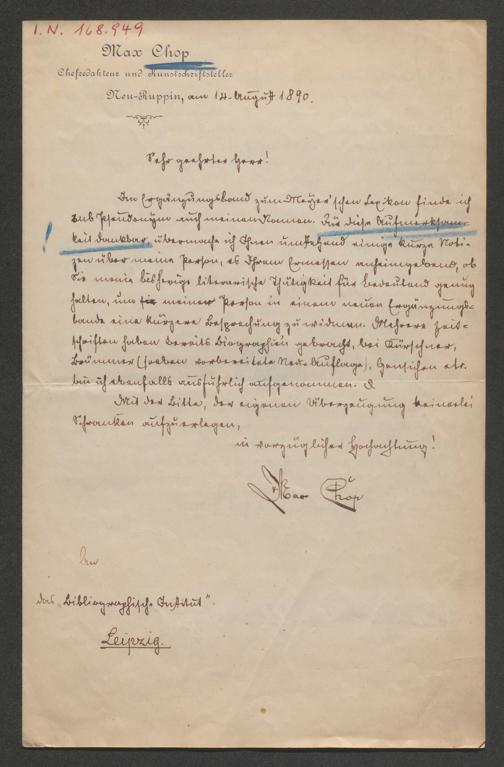 I.N. 168.949
Max Chop
Chefredakteur und Kunstschriftsteller
Neu-Ruppin, am 14. August 1890.
Sehr geehrter Herr!
Im Ergänzungsband zum Meyer'schen Lexikon finde ich
sub Pseudonym auch meinen Namen. Für diese Aufmerksam-
keit dankbar, übermache ich Ihnen umstehend einige kurze Noti-
zen über meine Person, es Ihrem Ermessen anheimgebend, ob
Sie meine bisherige literarische Thätigkeit für bedeutend genug
halten, um meiner Person in einem neuen Ergänzungs-
bande eine kürzere Besprechung zu widmen. Mehrere Zeit-
schriften haben bereits Biographien gebracht, bei Kürschner,
Brümmer (soeben vorbereitete Neu-Auflage), Hensichen etc.
bin ich ebenfalls ausführlich aufgenommen.
Mit der Bitte, der eigenen Überzeugung keinerlei
Schranken aufzuerlegen,
in vorzüglicher Hochachtung!
Max Chop
An
das „Bibliographische Institut".
Leipzig.